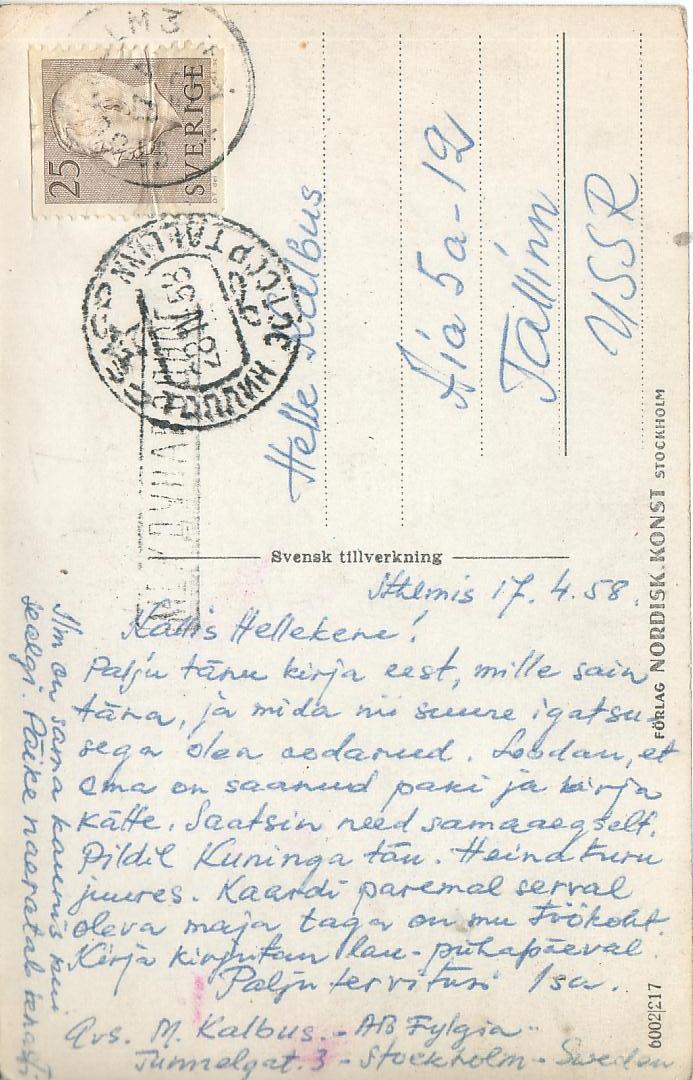 25
SVERIGE
TALLINN
28 IV 58
ТАЛЛИН
Helle Kalbus
Aia 5a-12
Tallinn
USSR
Svensk tillverkning
FÖRLAG NORDISK KONST STOCKHOLM
6002/217
Sthlmis 17. 4. 58.
Kallis Hellekene!
Palju tänu kirja eest, mille sain
täna, ja mida nii suure igatsu-
sega olen oodanud. Loodan, et
ema on saanud paki ja kirja
kätte. Saatsin need samaaegselt.
Pildil Kuninga tän. Heinaturu
juures. Kaardi paremal serval
oleva maja taga on mu töökoht.
Kirja kirjutan lau-pühapäeval.
Palju tervitusi Isa.
Ilm on sama kaunis kui
sealgi. Päike naeratab
Avs. M. Kalbus. - AB Fylgia -
Tunnelgat. 3 - Stockholm - Sweden